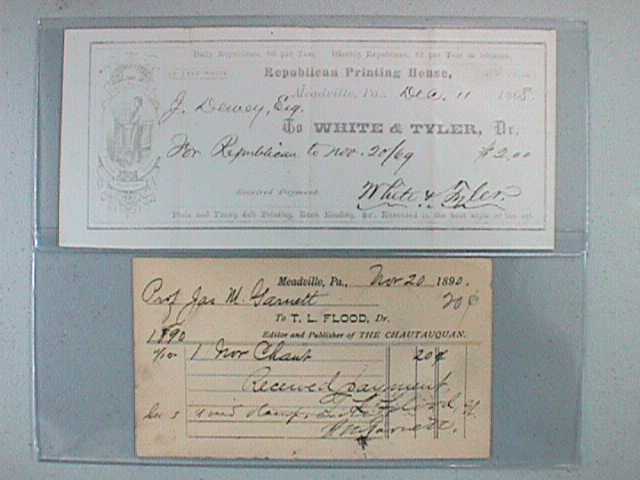 Daily Republican, $6 per Year. Weekly Republican, $2 per Year in advance.
Republican Printing House,
Meadville, Pa., Dec. 11 1868.
J. Dewey, Esq.
To WHITE & TYLER, Dr.
For Republican to Nov. 20/69 $2.00
Received Payment
White & Tyler
Plain and Fancy Job Printing, Book Binding, &c. Executed in the best style of the art.
Meadville, Pa., Nov 20 1890.
Prof Jas M. Garnett 20¢
To T. L. FLOOD, Dr.
Editor and Publisher of THE CHAUTAUQUAN.
1890
1 Nov Chaut 20¢
Received payment
T L Flood,
Garnett.